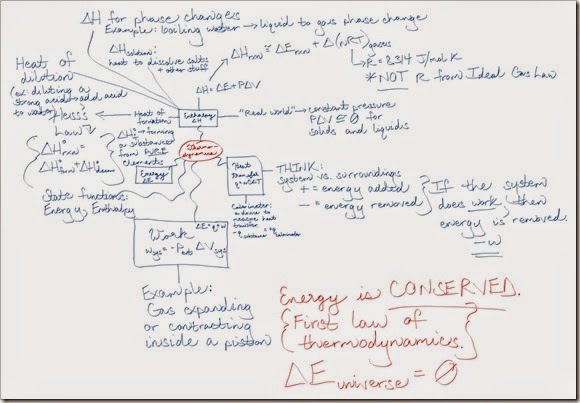 ΔH for phase changes
Example: boiling water → liquid to gas phase change
ΔHsolution:
heat to dissolve salts
+ other stuff
ΔHrxn ≅ ΔErxn + Δ(nRT)gases
→ R = 8.314 J/mol K
* NOT R from Ideal Gas Law
ΔH = ΔE + PΔV
Heat of
dilution
(ex: diluting a
strong acid → add acid
to water)
Heat of
formation
Enthalpy
ΔH
"Real world" → constant pressure
PΔV ≅ 0 for
solids and liquids
Heiss's
Law
ΔH°rxn =
ΔH°form + ΔH°decom
ΔH°f → forming
a substance
from pure
elements
Thermo-
dynamics
Energy
ΔE
Heat
Transfer
q = mCΔT
THINK:
system vs. surroundings
+ = energy added
- = energy removed
If the system
does work, then
energy is removed.
-w
State functions:
Energy, Enthalpy
Calorimeter:
a device to
measure heat
transfer
ΔE = q + w
Work
wsys = -Pext ΔVsys
Example:
Gas expanding
or contracting
inside a piston
Energy is CONSERVED.
First law of
thermodynamics.
ΔE universe = 0